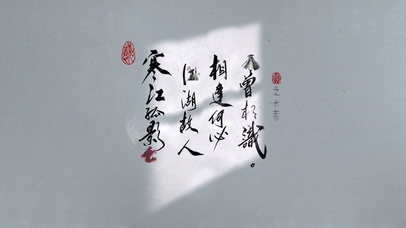 寒江孤影
江湖故人
相逢何必
曾相識。